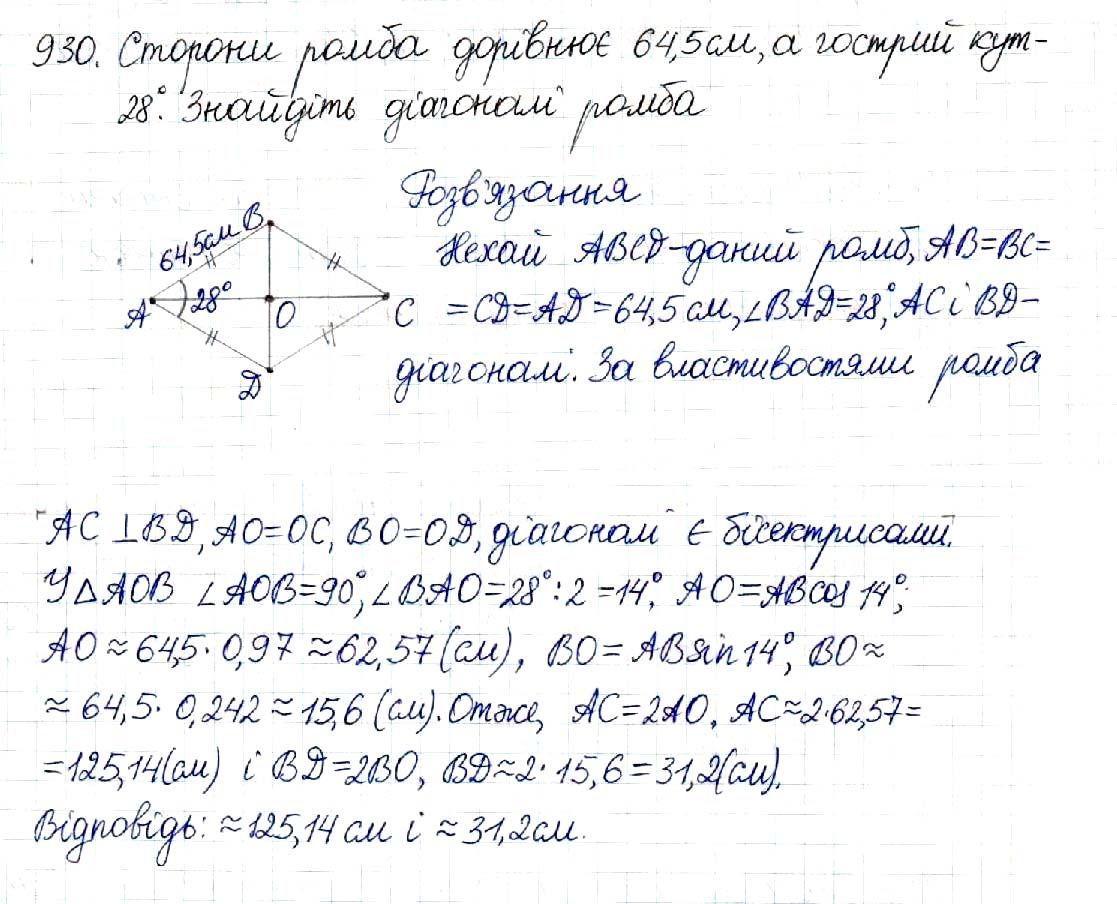 930. Сторони ромба дорівнює 64,5см, а гострий кут-
28°. Знайдіть діагоналі ромба
Розв'язання
64,5см
B
28°
A
O
C
D
Нехай ABCD-даний ромб, AB=BC=
=CD=AD=64,5см, ∠BAD=28°, AC і BD-
діагоналі. За властивостями ромба
AC ⊥ BD, AO=OC, BO=OD, діагоналі є бісектрисами.
У △AOB ∠AOB=90°, ∠BAO=28°:2=14°, AO=ABcos 14°;
AO≈64,5·0,97≈62,57(см), BO=ABsin14°, BO≈
≈64,5·0,242≈15,6(см). Отже, AC=2AO, AC≈2·62,57=
=125,14(см) і BD=2BO, BD≈2·15,6=31,2(см).
Відповідь: ≈125,14см і ≈31,2см.